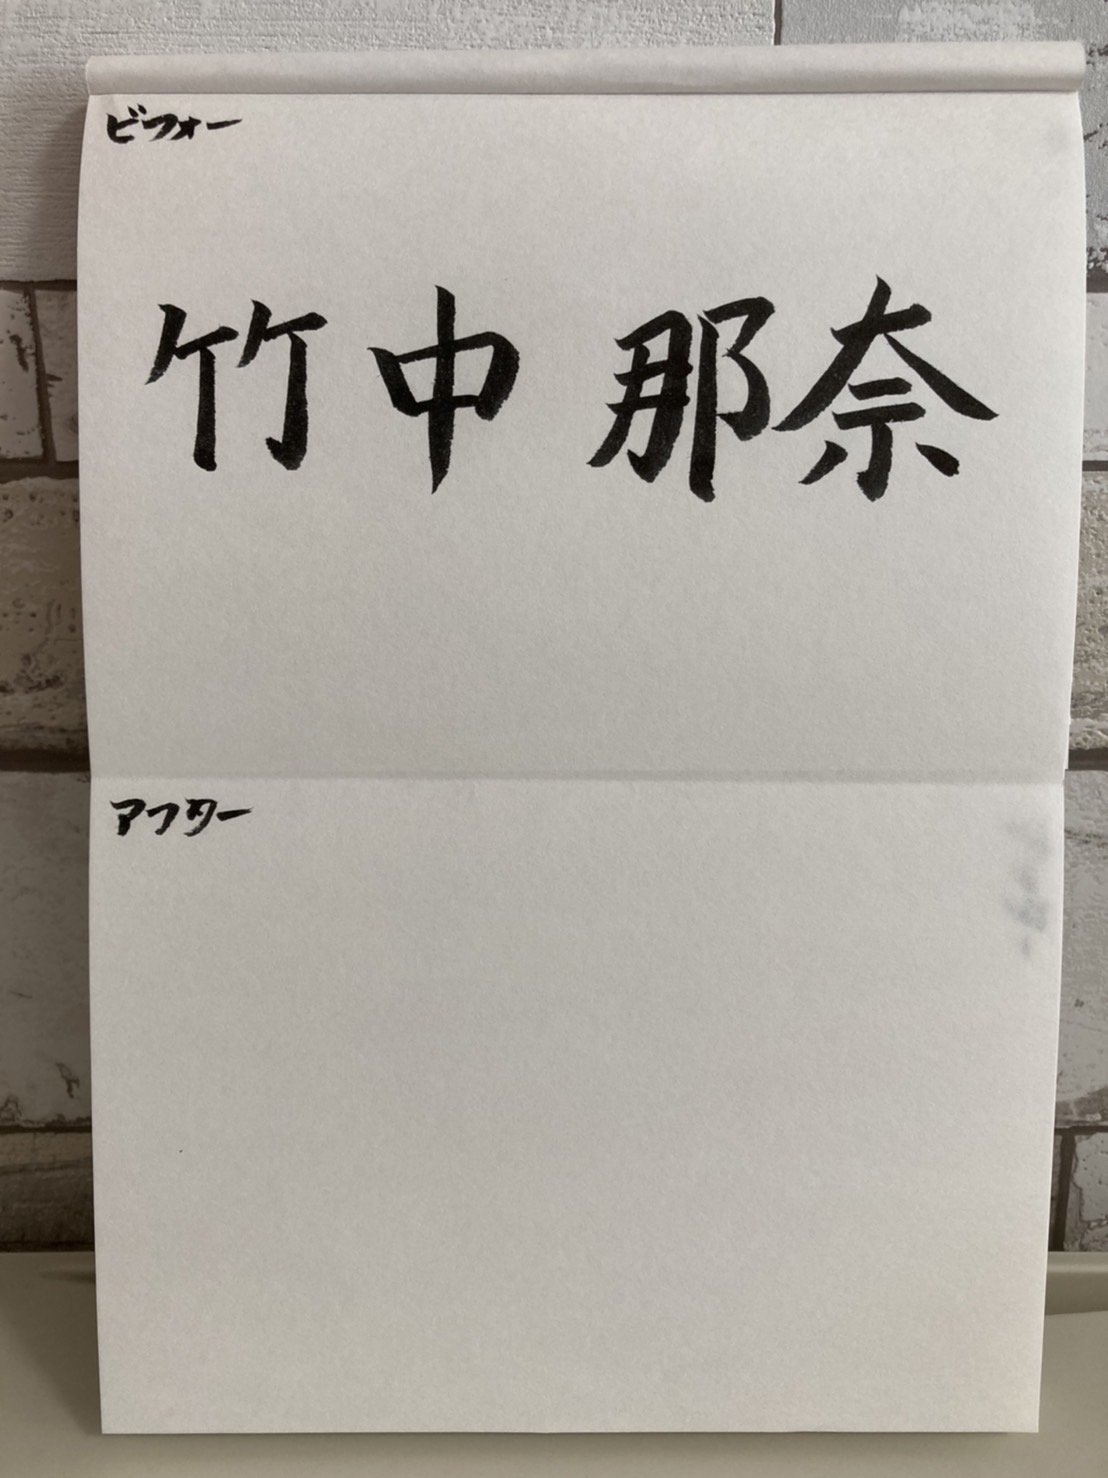 ビフォー
竹中 那奈
アフター